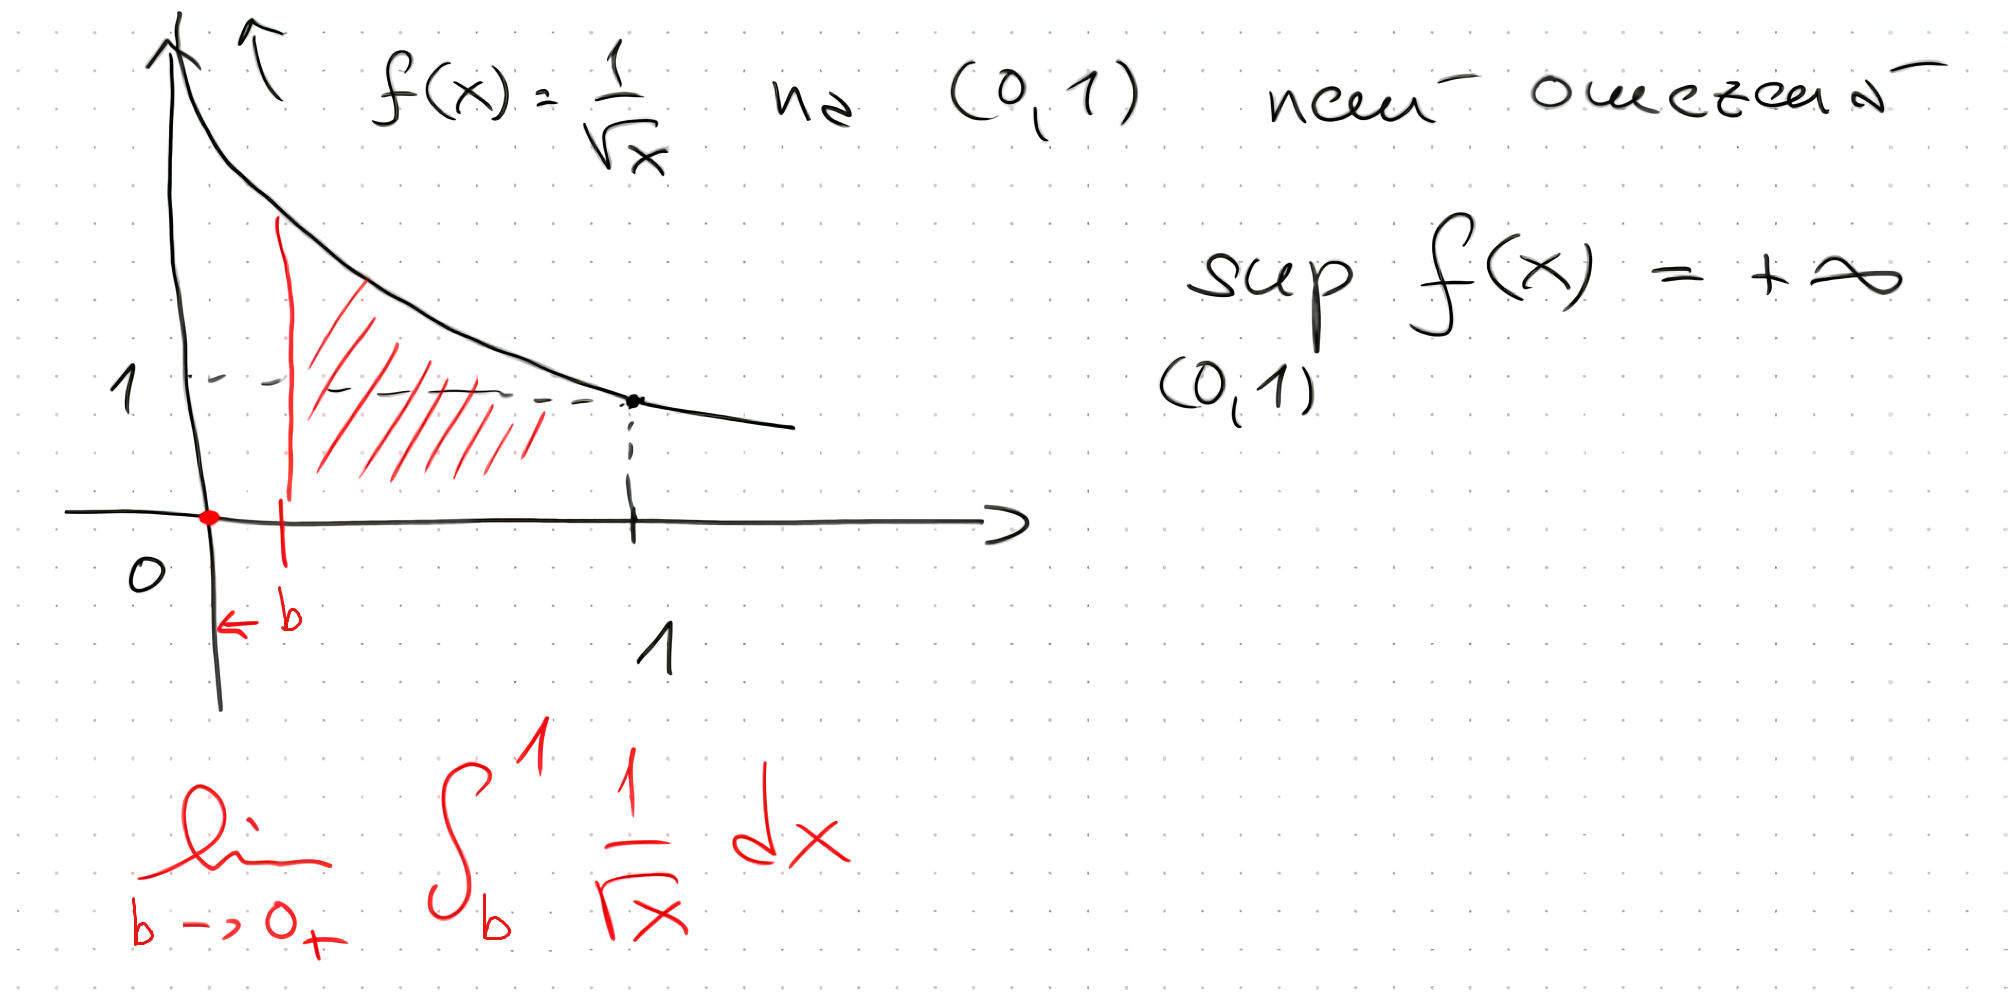 f(x) = 1/√x na (0,1) není omezená
sup f(x) = +∞
(0,1)
1
0
b
1
lim ∫_b^1 1/√x dx
b → 0+